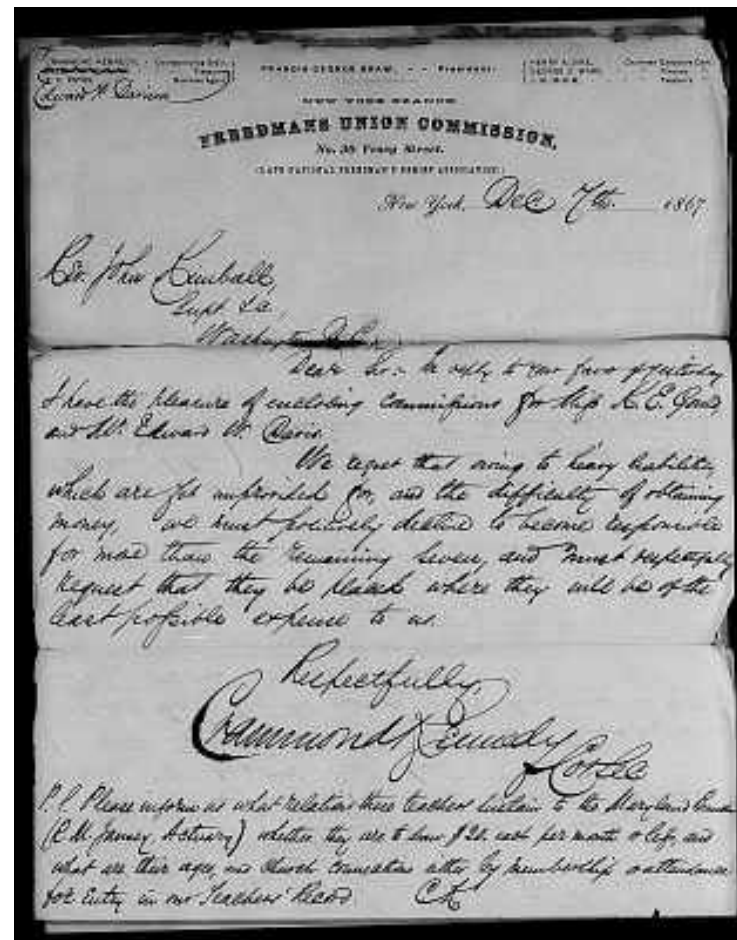 FRANCIS GEORGE SHAW, - - President.
Edward W. Davison
NEW YORK BRANCH
FREEDMANS UNION COMMISSION,
No. 30 Vesey Street.
(LATE NATIONAL FREEDMAN'S RELIEF ASSOCIATION)
New York, Dec 7th 1867
Rev. John Kimball,
Supt &c,
Washington D.C.
Dear Sir:- In reply to your favor of yesterday
I have the pleasure of enclosing commissions for Miss K. E.
and Mr. Edward W. Davis.
We regret that owing to heavy liabilities
which are yet unprovided for, and the difficulty of obtaining
money, we must positively decline to become responsible
for more than the remaining seven, and must respectfully
request that they be placed where they will be of the
least possible expense to us.
Respectfully
Crammond Kennedy
Cor Sec
P.S. Please inform us what relation these teachers sustain to the Maryland
(R M Janney Actuary) whether they are to draw $20. each per month or less, and
what are their ages, and church connection either by membership or attendance
for Entry in our Teachers' Record. CK